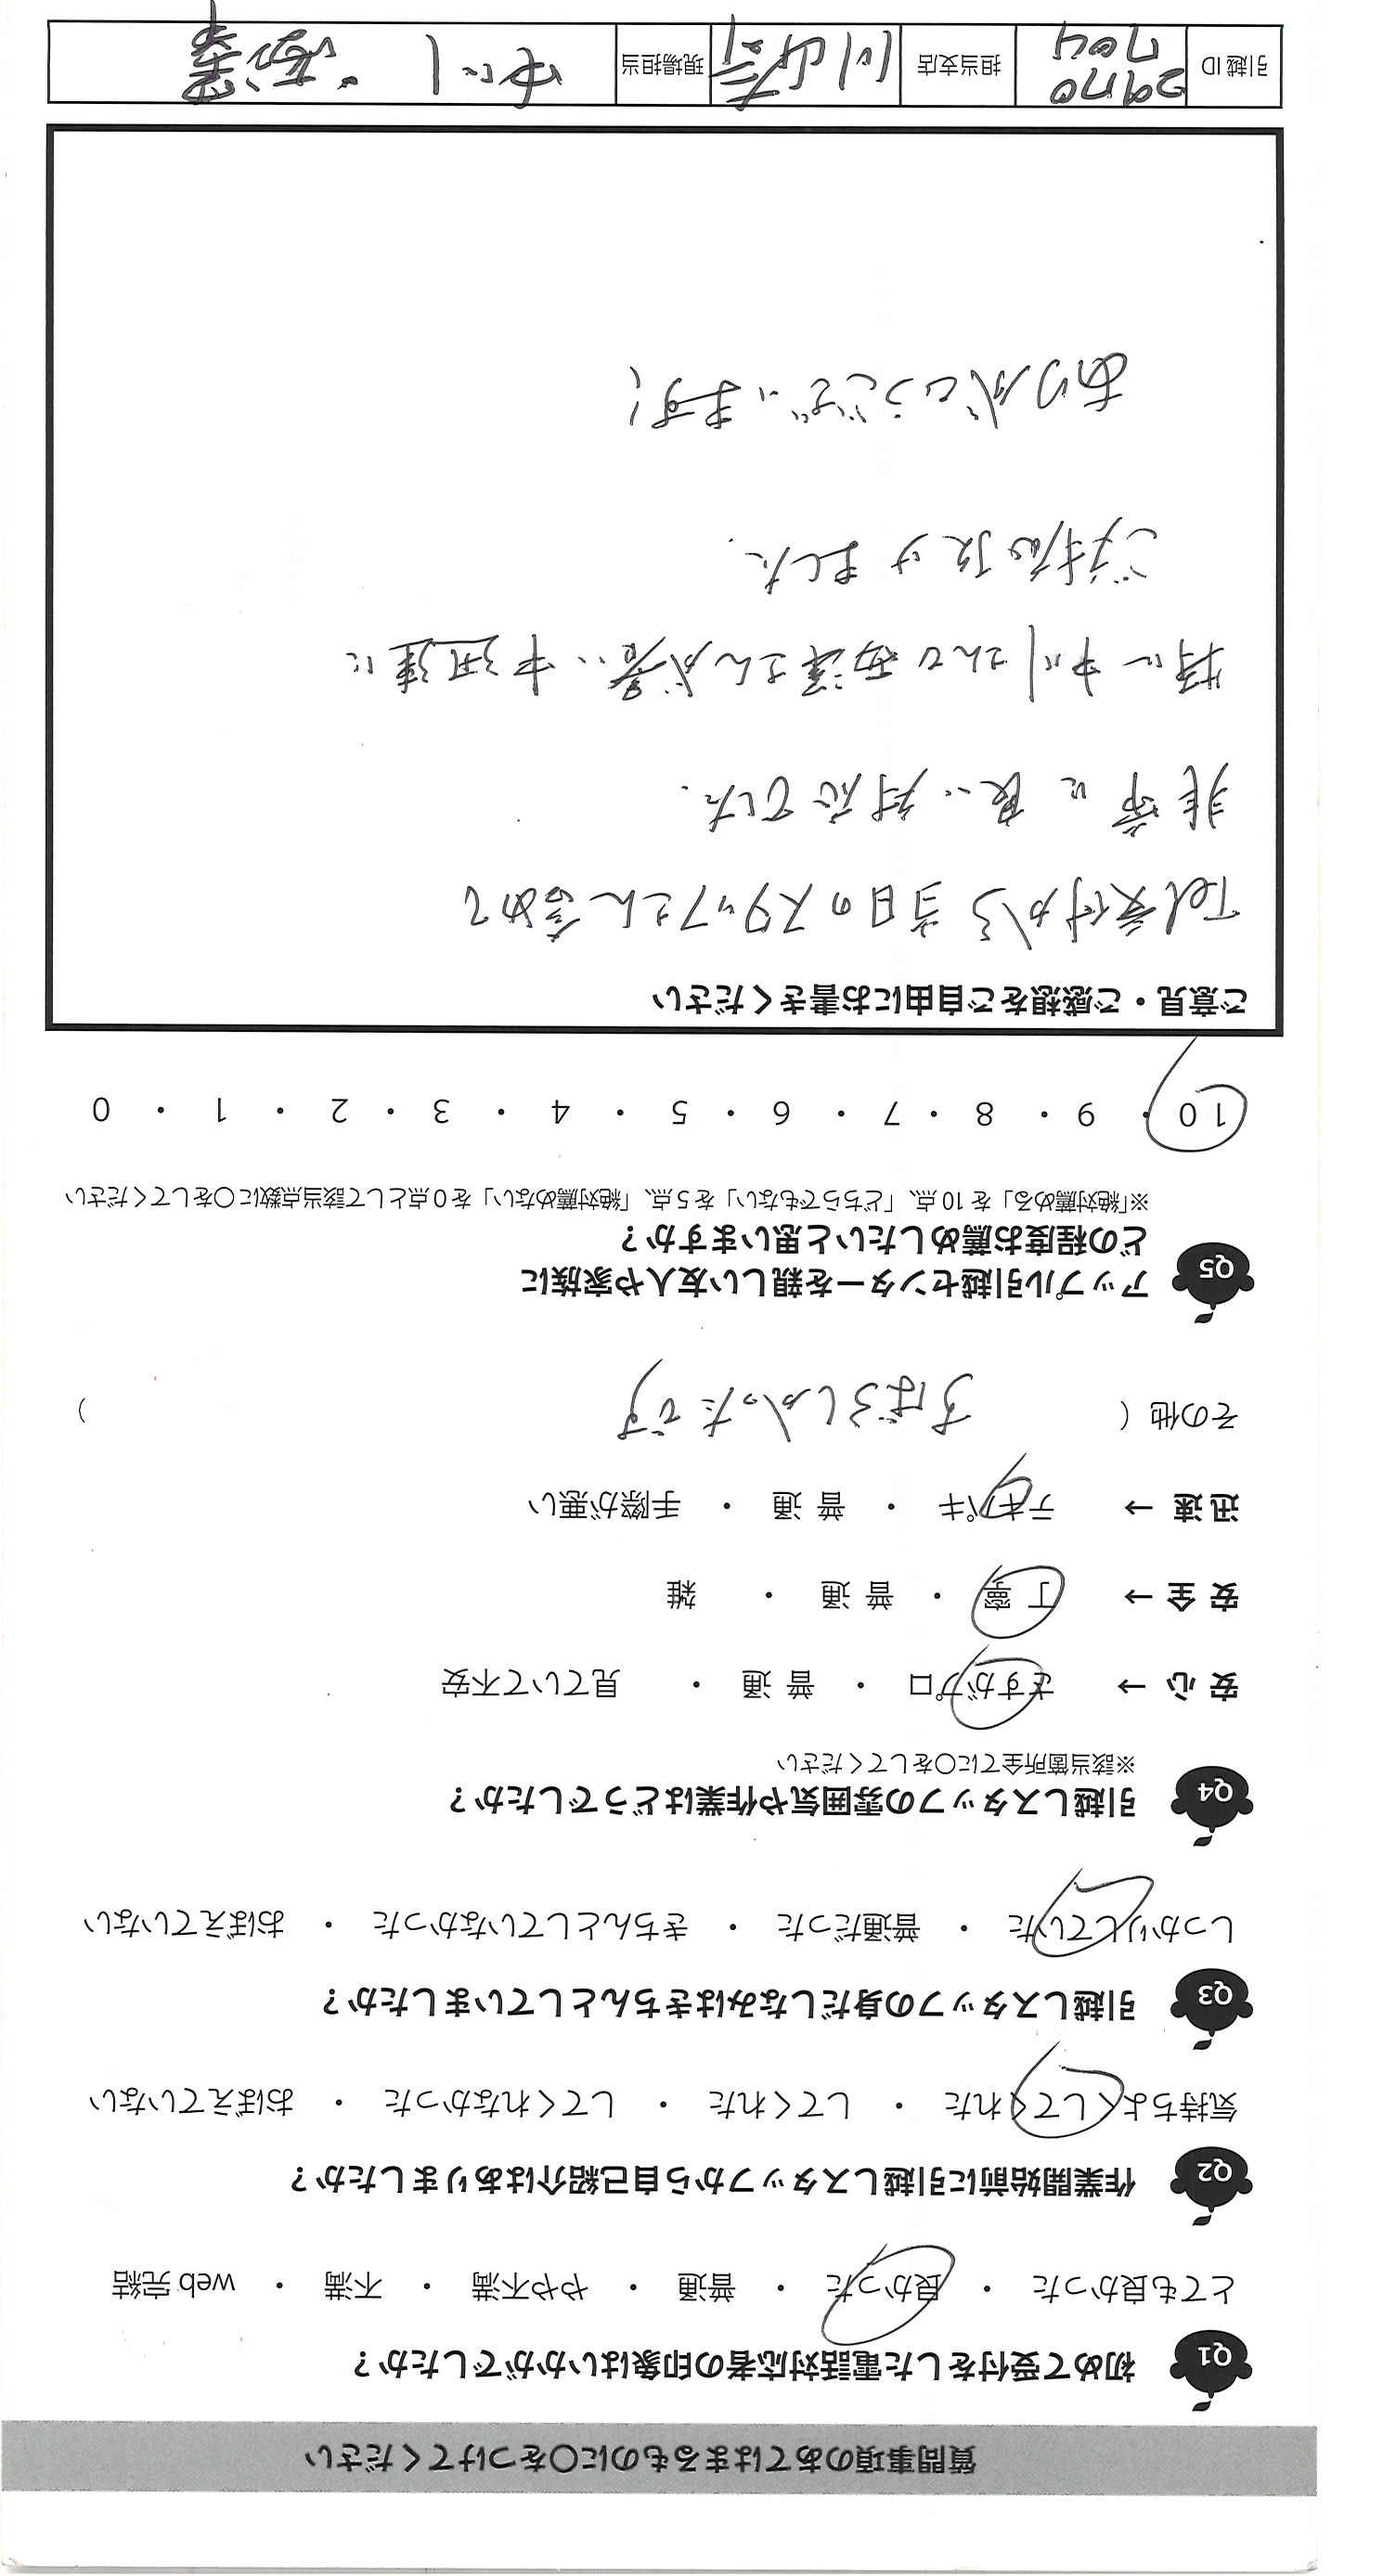 質問事項のあてはまるものに〇をつけてください
Q1 初めて受付をした電話対応者の印象はいかがでしたか？
とても良かった ・ 良かった ・ 普通 ・ やや不満 ・ 不満 ・ web 完結
Q2 作業開始前に引越しスタッフから自己紹介はありましたか？
気持ちよくしてくれた ・ してくれた ・ してくれなかった ・ おぼえていない
Q3 引越しスタッフの身だしなみはきちんとしていましたか？
しっかりしていた ・ 普通だった ・ きちんとしていなかった ・ おぼえていない
Q4 引越しスタッフの雰囲気や作業はどうでしたか？
※該当箇所全てに〇をしてください
安 心 → さすがプロ ・ 普 通 ・ 見ていて不安
安 全 → 丁 寧 ・ 普 通 ・ 雑
迅 速 → テキパキ ・ 普 通 ・ 手際が悪い
その他 ( すばらしかったです )
Q5 アップル引越センターを親しい友人や家族に
どの程度お薦めしたいと思いますか？
※「絶対薦める」を 10 点、「どちらでもない」を 5 点、「絶対薦めない」を 0 点として該当点数に〇をしてください
10 ・ 9 ・ 8 ・ 7 ・ 6 ・ 5 ・ 4 ・ 3 ・ 2 ・ 1 ・ 0
ご意見・ご感想をご自由にお書きください
Tel受付から当日のスタッフさん含めて
非常に良い対応でした.
特に中川さんと さんが暑い中迅速に
ご対応頂けました.
ありがとうございます!
引越 ID 2970
704 担当支店 川崎 現場担当 中川